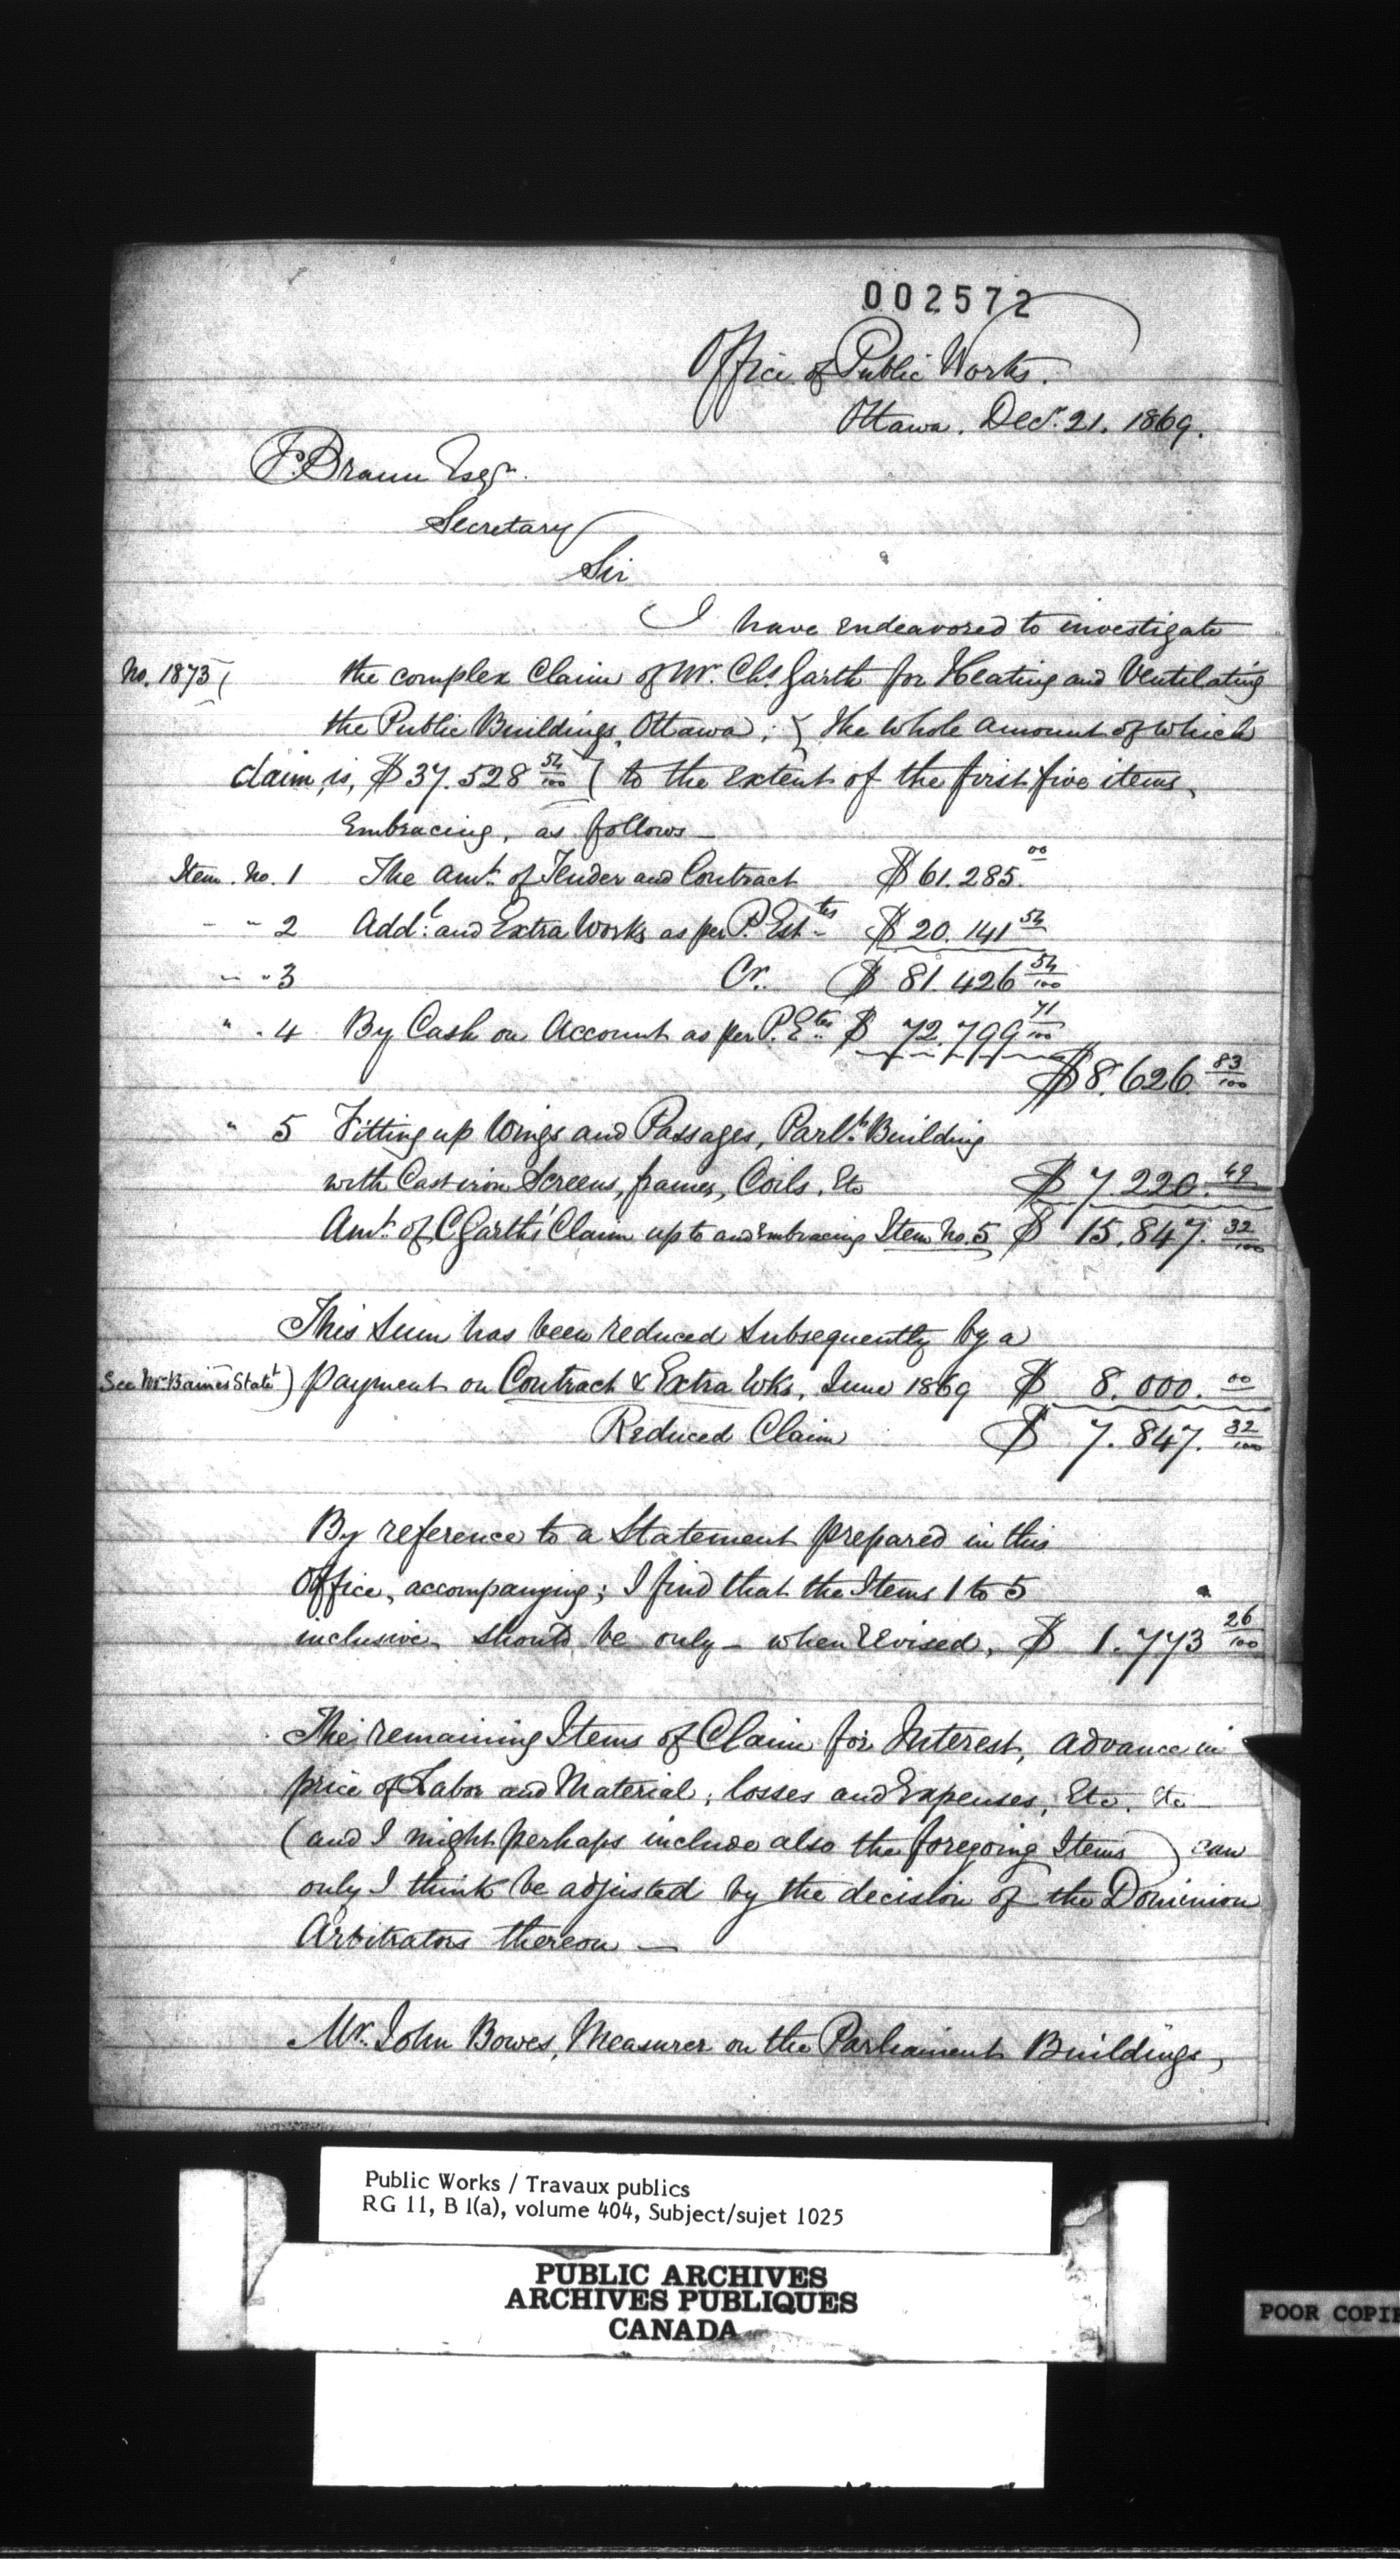 002572
Office of Public Works.
Ottawa. Decr. 21. 1869.
F. Braun Esqr.
Secretary
Sir
I have endeavored to investigate
No. 1873 ( the complex Claim of Mr. Chs. Garth for Heating and Ventilating
the Public Buildings, Ottawa; } the whole amount of which
claim, is, $37.528 54/100 ( to the extent of the first five items,
Embracing, as follows —
Item. No. 1 The Amt. of Tender and Contract $61.285. 00
" " 2 Addl. and Extra Works as per P. Estes $20.141 54
" " 3 Cr. $81.426 54/100
" " 4 By Cash on Account as per P. Etes $72.799 71/100
$8.626. 83/100
" 5 Fitting up Wings and Passages, Parlt. Building
with Cast iron Screens, frames, Coils, Etc $7.220. 49
Amt. of C Garth's Claim up to and embracing Item No. 5 $15.847. 32/100
This Sum has been reduced subsequently by a
See Mr. Baines Statt ) payment on Contract & Extra Wks, June 1869 $8.000. 00
Reduced Claim $7.847. 32/100
By reference to a Statement prepared in this
Office, accompanying; I find that the Items 1 to 5
inclusive, should be only — when revised, $1.773 26/100
The remaining Items of Claim for Interest, advance in
price of Labor and Material, losses and Expenses, Etc. Etc
(and I might perhaps include also the foregoing Items ) can
only I think be adjusted by the decision of the Dominion
Arbitrators thereon —
Mr. John Bowes, Measurer on the Parliament Buildings,
Public Works / Travaux publics
RG 11, B 1(a), volume 404, Subject/sujet 1025
PUBLIC ARCHIVES
ARCHIVES PUBLIQUES
CANADA
POOR COPIE